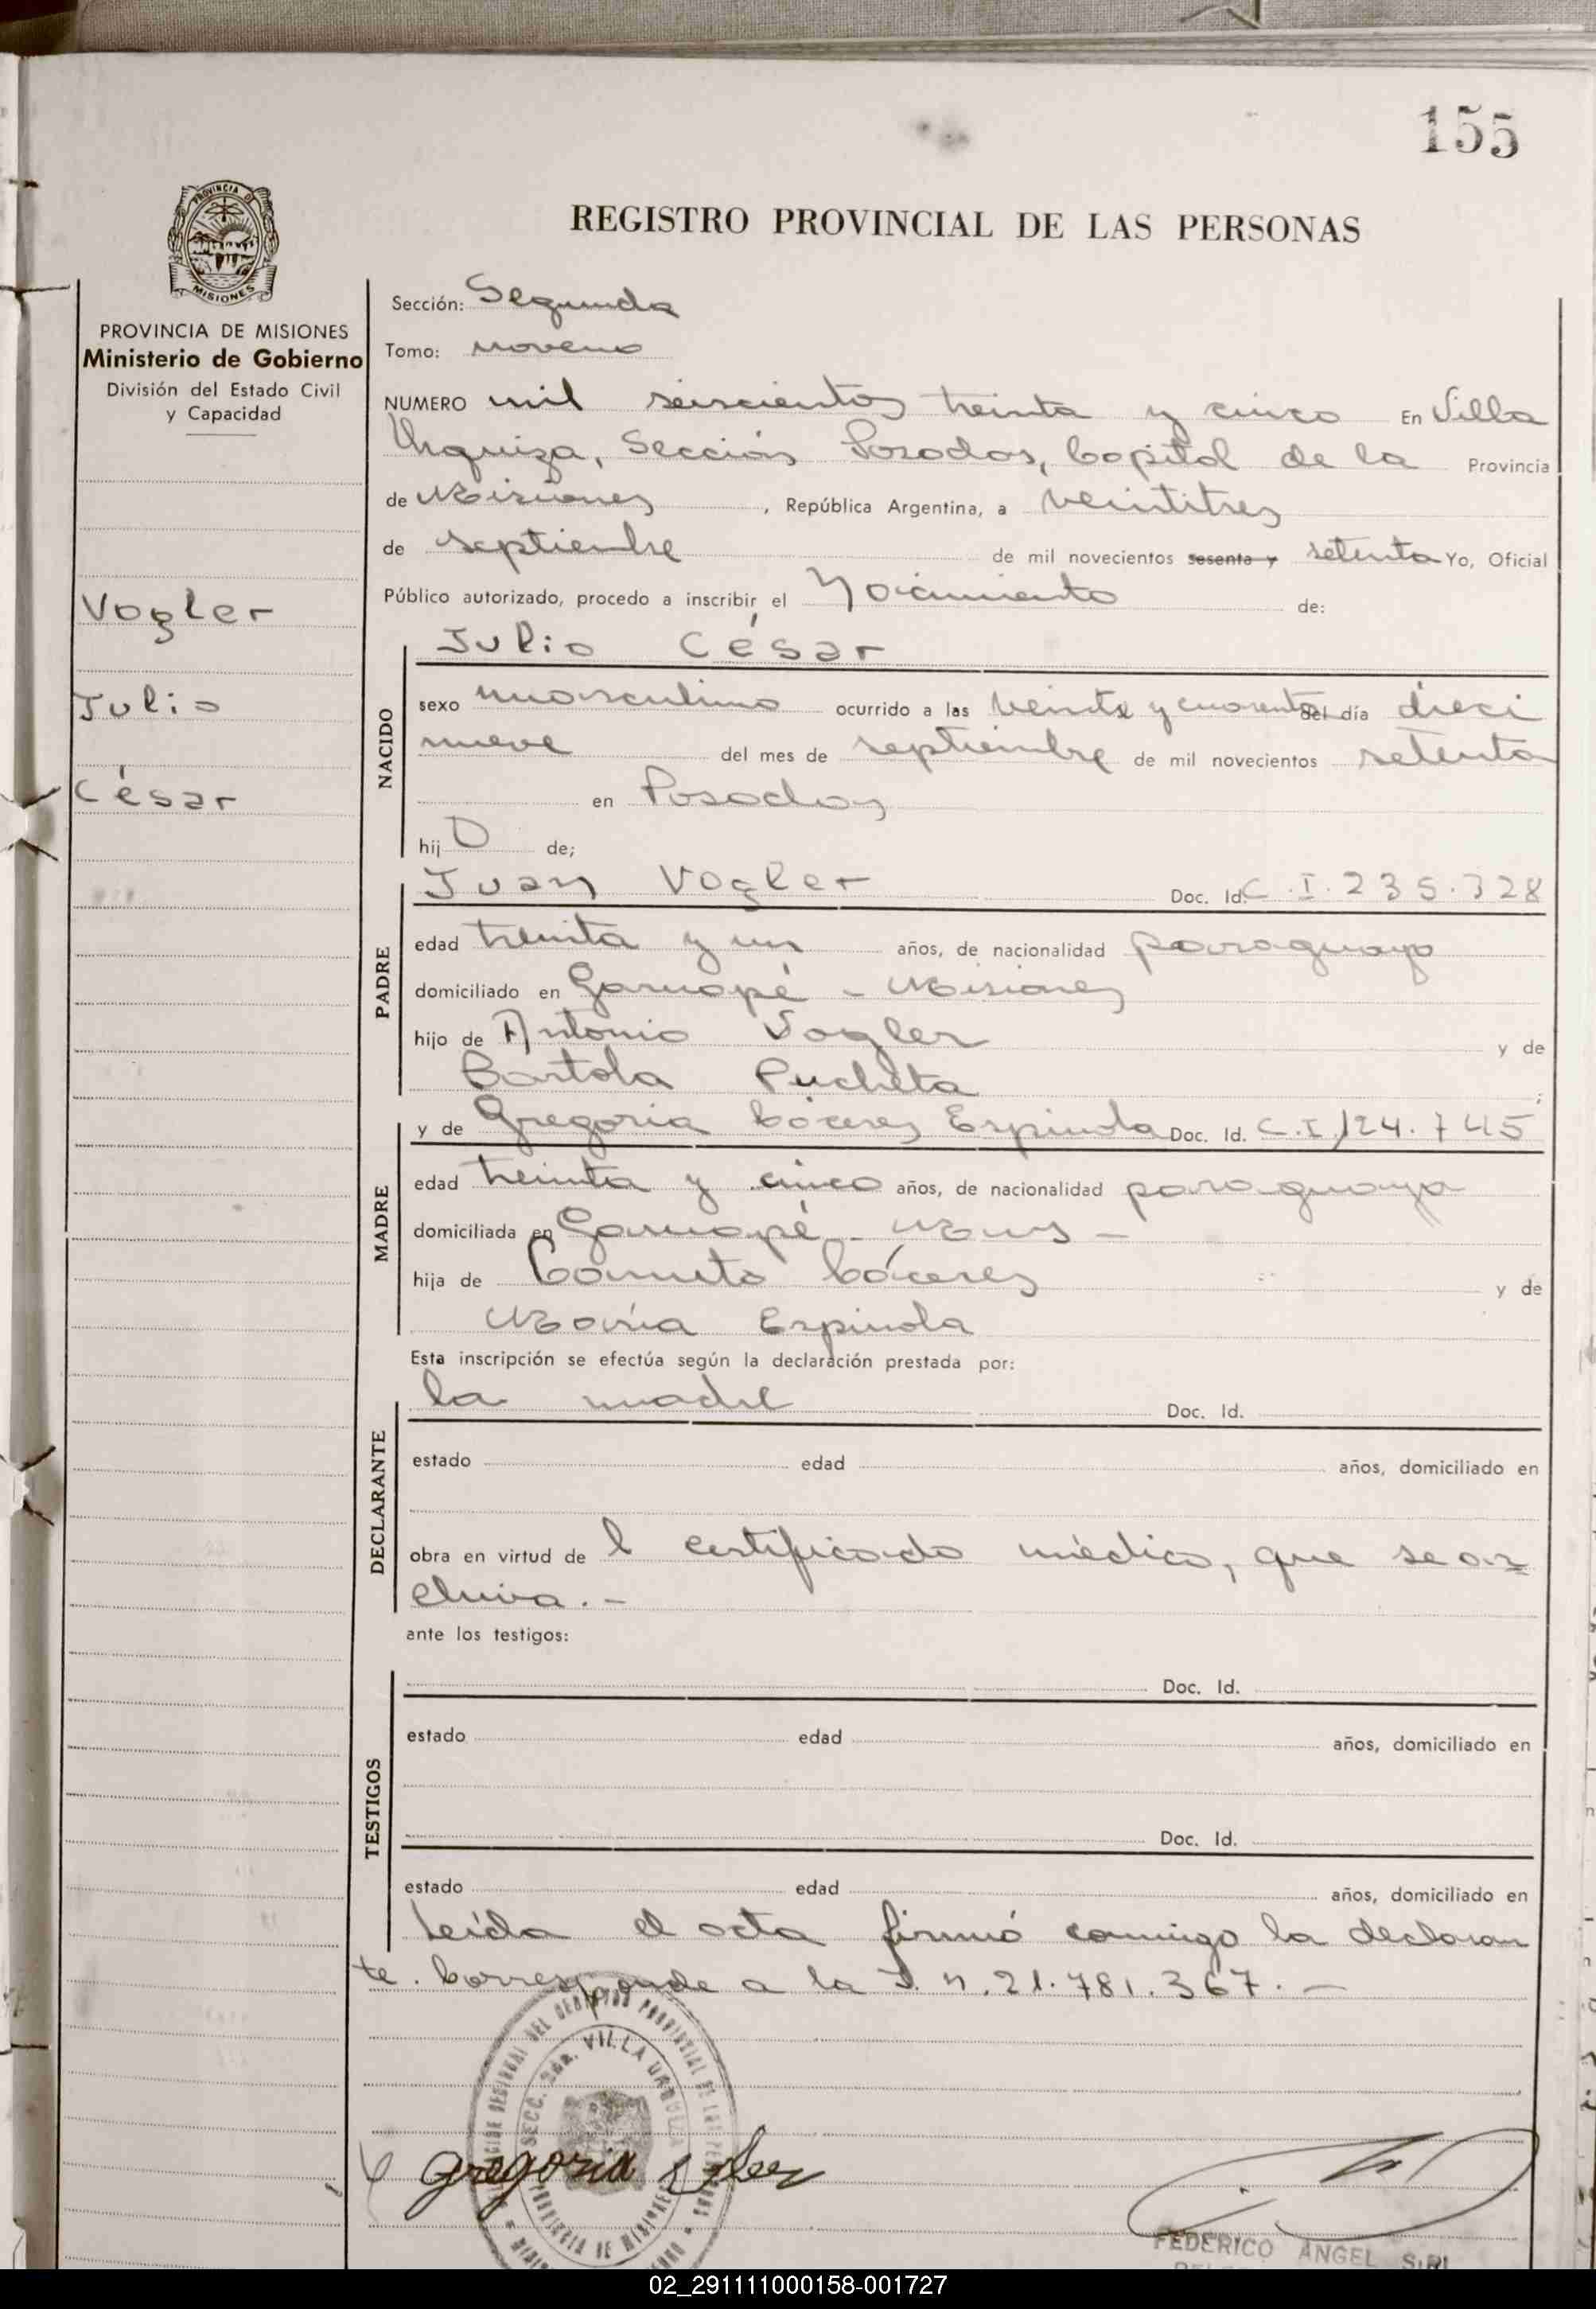 155
PROVINCIA DE
MISIONES
REGISTRO PROVINCIAL DE LAS PERSONAS
PROVINCIA DE MISIONES
Ministerio de Gobierno
División del Estado Civil
y Capacidad
Vogler
Julio
César
Sección: Segunda
Tomo: noveno
NUMERO mil seiscientos treinta y cinco En Villa
Urquiza, Sección Posadas, Capital de la Provincia
de Misiones, República Argentina, a veintitres
de septiembre de mil novecientos sesenta y setenta Yo, Oficial
Público autorizado, procedo a inscribir el Nacimiento de:
NACIDO
Julio César
sexo masculino ocurrido a las veinte y cuarenta del día dieci
nueve del mes de septiembre de mil novecientos setenta
en Posadas
hijo de;
PADRE
Juan Vogler Doc. Id. C.I. 235.328
edad treinta y un años, de nacionalidad paraguayo
domiciliado en Garuapé - Misiones
hijo de Antonio Vogler y de
Bartola Pucheta
MADRE
y de Gregoria Cáceres Espinola Doc. Id. C.I. 124.745
edad treinta y cinco años, de nacionalidad paraguaya
domiciliada en Garuapé -
hija de Cáceres y de
María Espinola
Esta inscripción se efectúa según la declaración prestada por:
DECLARANTE
la madre Doc. Id.
estado edad años, domiciliado en
obra en virtud de l certificado médico, que se ar
chiva.-
ante los testigos:
TESTIGOS
Doc. Id.
estado edad años, domiciliado en
Doc. Id.
estado edad años, domiciliado en
Leída el acta firmó conmigo la declaran
te. Corresponde a la 21.781.367.-
SECC. 2da. VILLA URQUIZA
PROVINCIA DE MISIONES
Gregoria
FEDERICO ANGEL SIRI
02_291111000158-001727